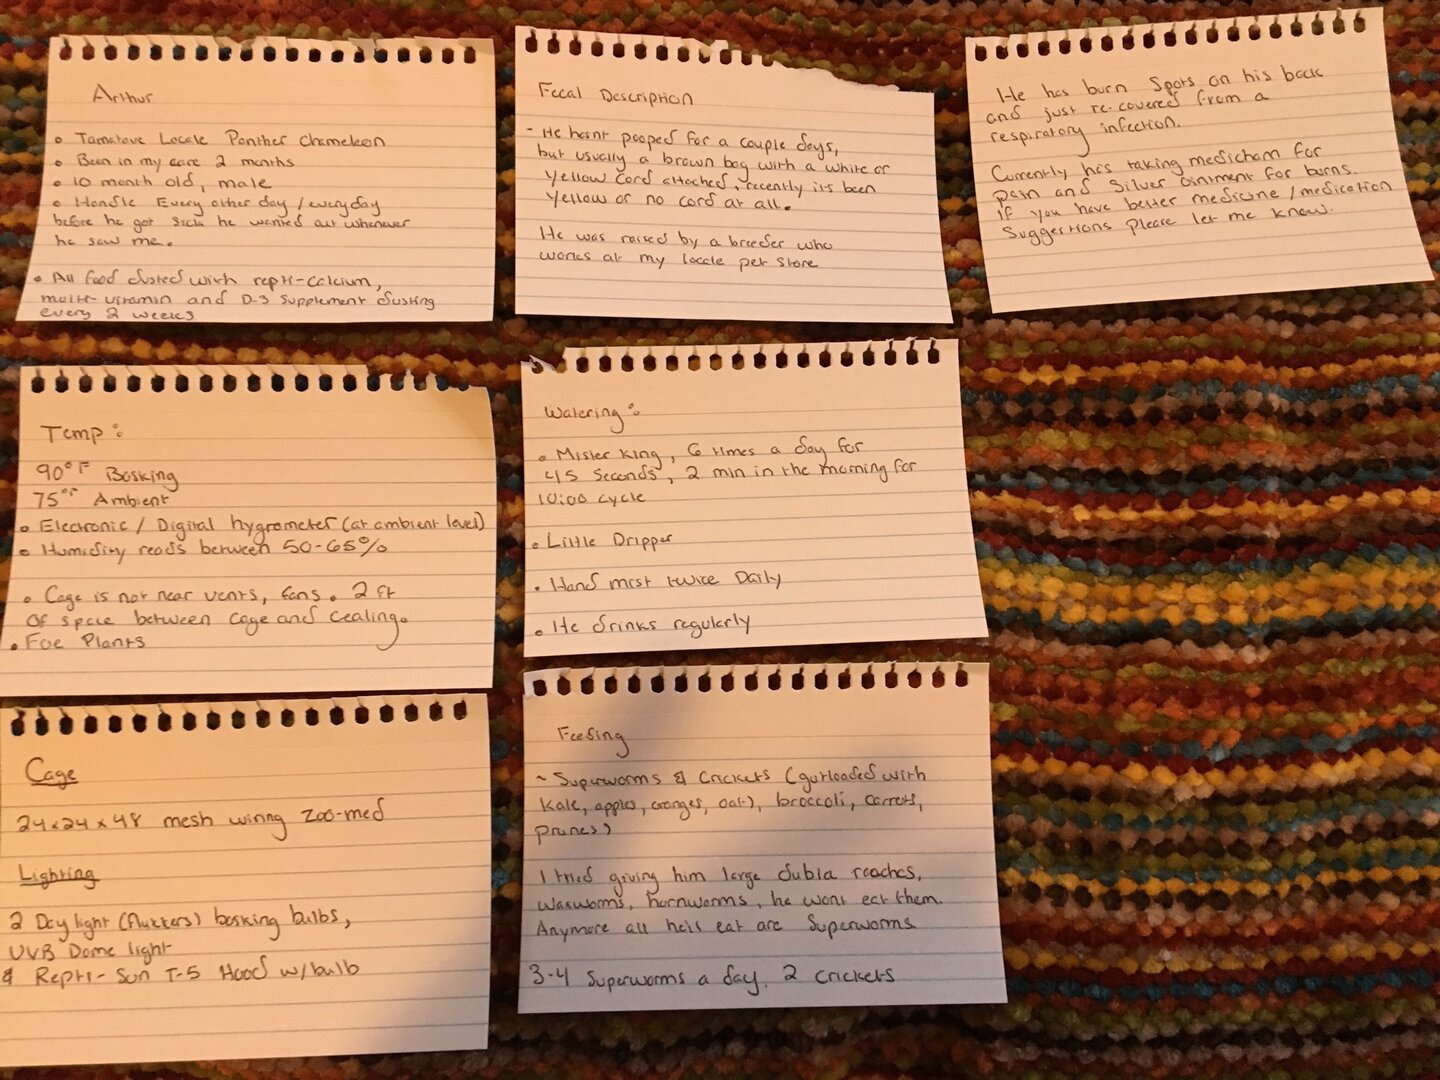 Arthur
• Tamatove Locale Panther Chameleon
• Been in my care 2 months
• 10 month old, male
• Handle Every other day / everyday
before he got sick he wanted out whenever
he saw me.
• All food dusted with repti-calcium,
multi-vitamin and D-3 supplement dusting
every 2 weeks
Fecal Description
- He hasnt pooped for a couple days,
but usually a brown bag with a white or
yellow cord attached, recently its been
yellow or no cord at all.
He was raised by a breeder who
works at my locale pet store
He has burn spots on his back
and just re-covered from a
respiratory infection.
Currently he's taking medicham for
pain and Silver Ointment for burns.
If you have better medicine / medication
suggestions please let me know.
Temp:
90°F Basking
75°F Ambient
• Electronic / Digital hygrometer (at ambient level)
• Humidity reads between 50-65%
• Cage is not near vents, fans. 2 ft
of space between cage and cealing.
• Foe Plants
Watering:
• Mister King, 6 times a day for
45 seconds, 2 min in the morning for
10:00 cycle
• Little Dripper
• Hand mist twice Daily
• He drinks regularly
Cage
24x24x48 mesh wiring Zoo-med
Lighting
2 Day light (flukers) basking bulbs,
UVB Dome light
& Repti-Sun T-5 Hood w/bulb
Feeding
~ Superworms & Crickets (gutloaded with
kale, apples, oranges, oat), broccoli, carrots,
prunes)
I tried giving him large dubia roaches,
waxworms, hornworms, he wont eat them.
Anymore all he'll eat are Superworms
3-4 Superworms a day, 2 crickets